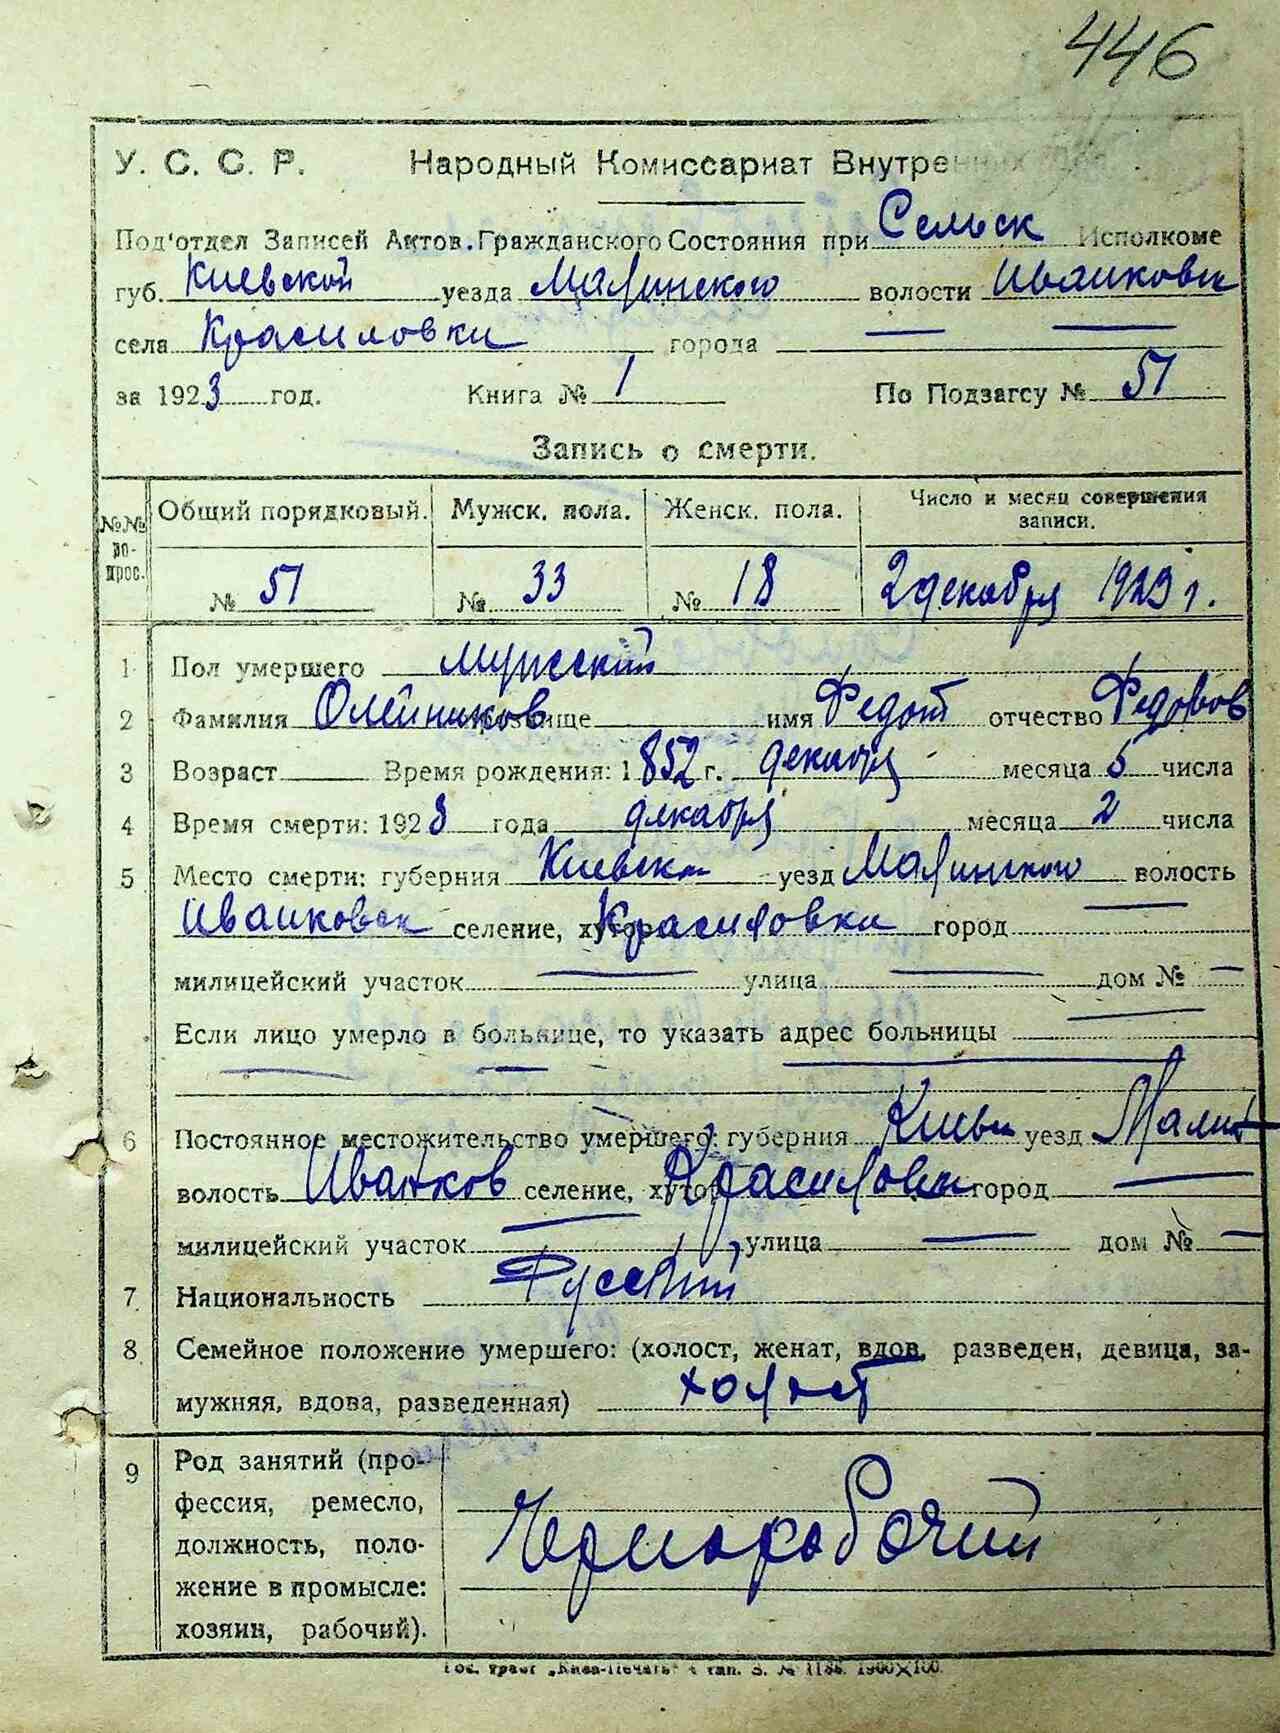 446
У. С. С. Р. Народный Комиссариат Внутренних
Под'отдел Записей Актов Гражданского Состояния при Сельск Исполкоме
губ. Киевской уезда Малинского волости Иванковск
села Красиловки города
за 1923 год. Книга № 1 По Подзагсу № 51
Запись о смерти.
№№ во-прос. Общий порядковый. Мужск. пола. Женск. пола. Число и месяц совершения записи.
№ 51 № 33 № 18 2 декабря 1923 г.
1 Пол умершего мужский
2 Фамилия Олейников прозвище имя Федот отчество Федоров
3 Возраст Время рождения: 1852 г. декабря месяца 5 числа
4 Время смерти: 1923 года декабря месяца 2 числа
5 Место смерти: губерния Киевск уезд Малинского волость
Иванковск селение, хутор Красиловки город
милицейский участок улица дом №
Если лицо умерло в больнице, то указать адрес больницы
6 Постоянное местожительство умершего: губерния Киевск уезд Малин
волость Иванков селение, хутор Красиловки город
милицейский участок улица дом №
7 Национальность Русский
8 Семейное положение умершего: (холост, женат, вдов, разведен, девица, за-
мужняя, вдова, разведенная) холост
9 Род занятий (про-
фессия, ремесло,
должность, поло-
жение в промысле:
хозяин, рабочий).
Чернорабочий
Гос. трест „Киев-Печать“ 4 тип. З. № 1186. 1900×100.